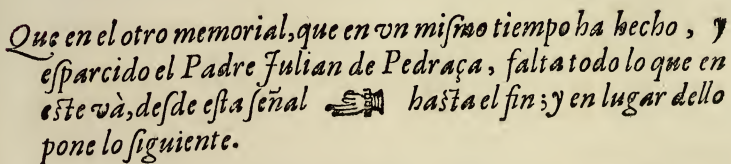 Que en el otro memorial, que en vn miſmo tiempo ha hecho, y
eſparcido el Padre Julian de Pedraça, falta todo lo que en
eſte và, deſde eſta ſeñal ☞ haſta el fin; y en lugar dello
pone lo ſiguiente.